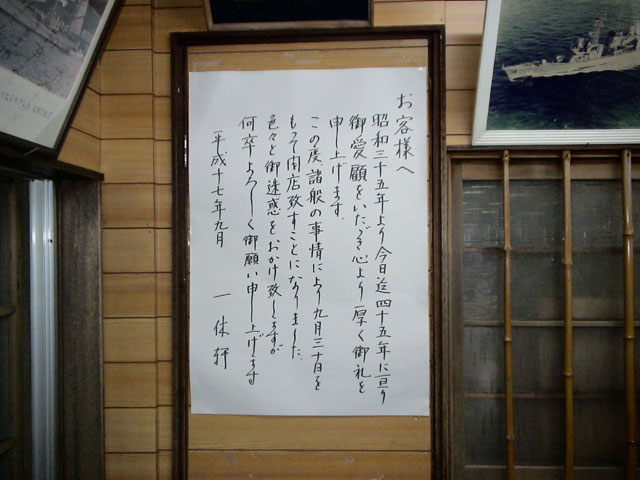 お客様へ
昭和三十五年より今日迄四十五年に亘り
御愛顧をいただき心より厚く御礼を
申し上げます。
この度諸般の事情により九月三十日を
もって閉店致すことになりました。
色々と御迷惑をおかけ致しますが
何卒よろしく御願い申し上げます
平成十七年九月
一休軒